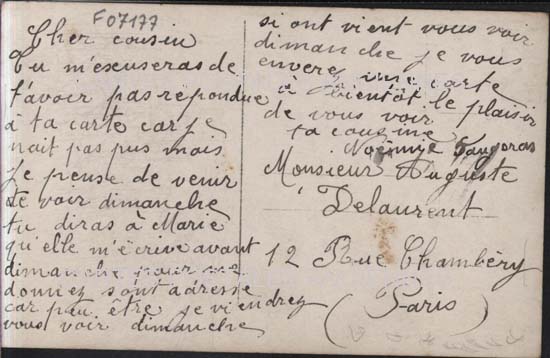 F07177
Cher cousin
Tu m'escuseras de
t'avoir pas répondue
à ta carte car je
nait pas pus mais
je pense de venir
te voir dimanche
tu diras à Marie
qu'elle m'écrive avant
dimanche pour me
donnez sont adresse
car peu être je viendrez
vous voir dimanche
si ont vient vous voir
dimanche je vous
enverez une carte
à bientôt le plaisir
de vous voir
ta cousine
Noëmie
Monsieur Auguste
Delaurent
12 Rue Chambéry
(Paris)